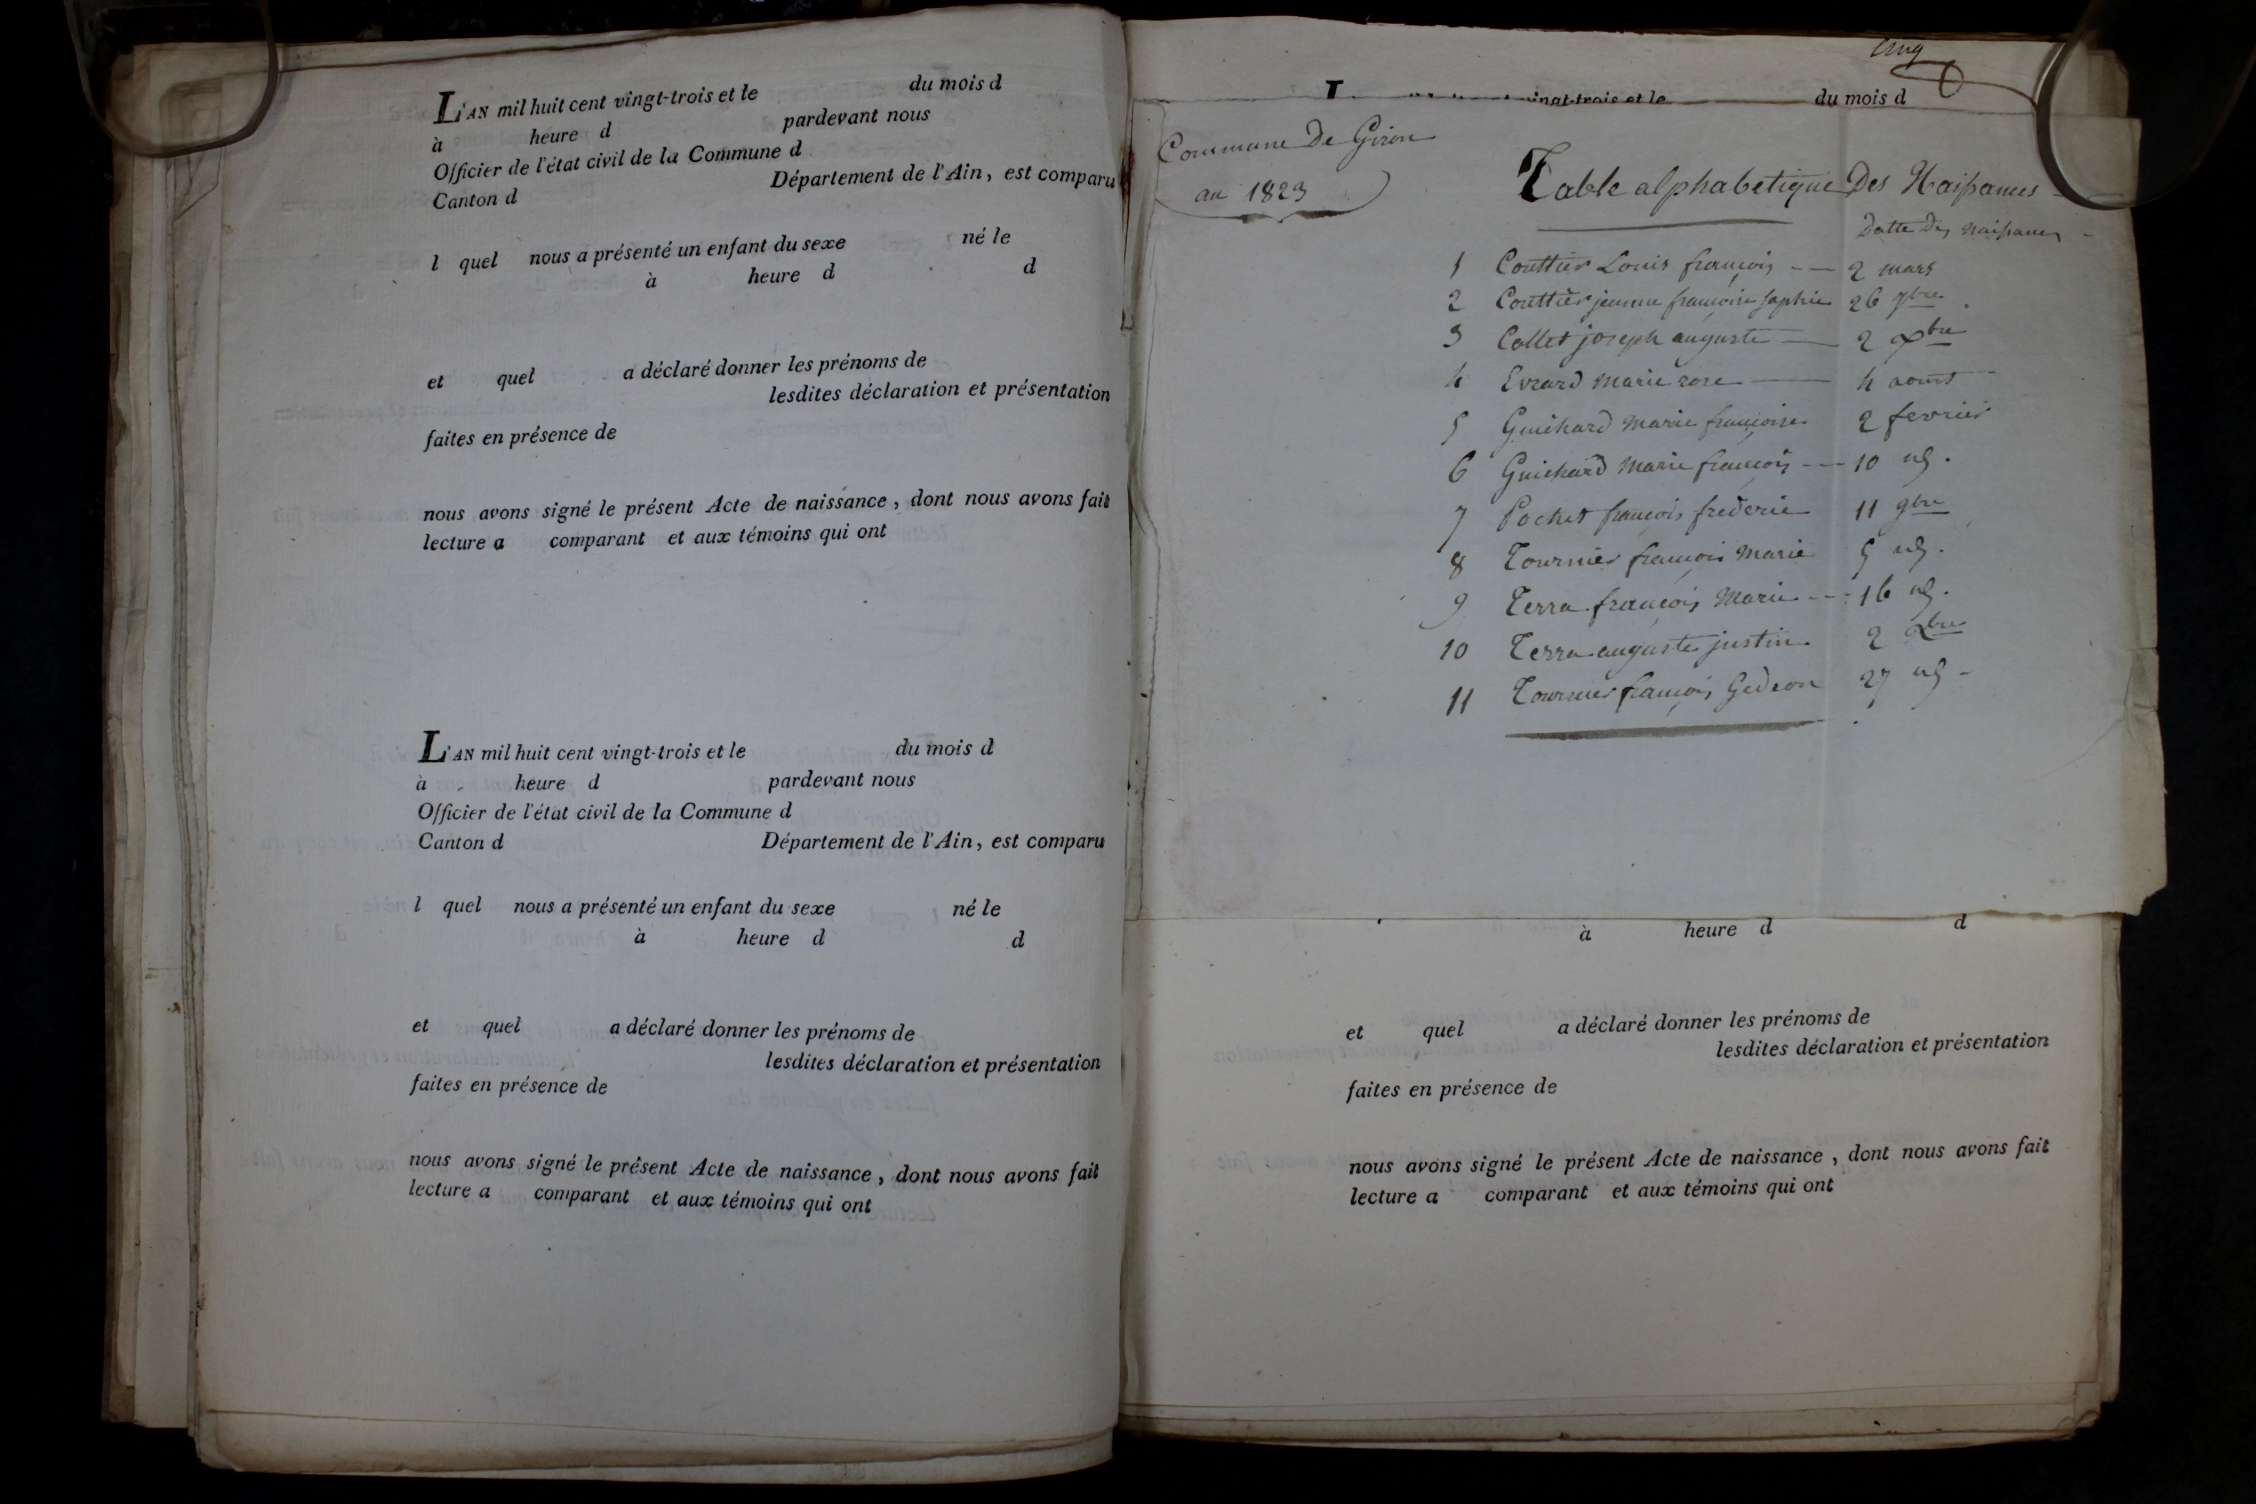 L'AN mil huit cent vingt-trois et le du mois d
à heure d pardevant nous
Officier de l'état civil de la Commune d
Canton d Département de l'Ain, est comparu
l quel nous a présenté un enfant du sexe né le
à heure d d
et quel a déclaré donner les prénoms de
lesdites déclaration et présentation
faites en présence de
nous avons signé le présent Acte de naissance, dont nous avons fait
lecture a comparant et aux témoins qui ont
L'AN mil huit cent vingt-trois et le du mois d
à heure d pardevant nous
Officier de l'état civil de la Commune d
Canton d Département de l'Ain, est comparu
l quel nous a présenté un enfant du sexe né le
à heure d d
et quel a déclaré donner les prénoms de
lesdites déclaration et présentation
faites en présence de
nous avons signé le présent Acte de naissance, dont nous avons fait
lecture a comparant et aux témoins qui ont
Cinq
vingt-trois et le du mois d
Commune De Giron
an 1823
Table alphabetique Des Naissances
Datte Des naissances
1 Couttier Louis françois 2 mars
2 Couttier jeanne françoise Sophie 26 7bre
3 Collet joseph auguste 2 Xbre
4 Evrard Marie rose 4 aoust
5 Guichard Marie françoise 2 fevrier
6 Guichard Marie françois 10 id.
7 Pochet françois frederic 11 9bre
8 Tournier françois Marie 5 id.
9 Terra françois Marie 16 id.
10 Terra auguste justin 2 Xbre
11 Tournier françois Gedeon 27 id
à heure d d
et quel a déclaré donner les prénoms de
lesdites déclaration et présentation
faites en présence de
nous avons signé le présent Acte de naissance, dont nous avons fait
lecture a comparant et aux témoins qui ont